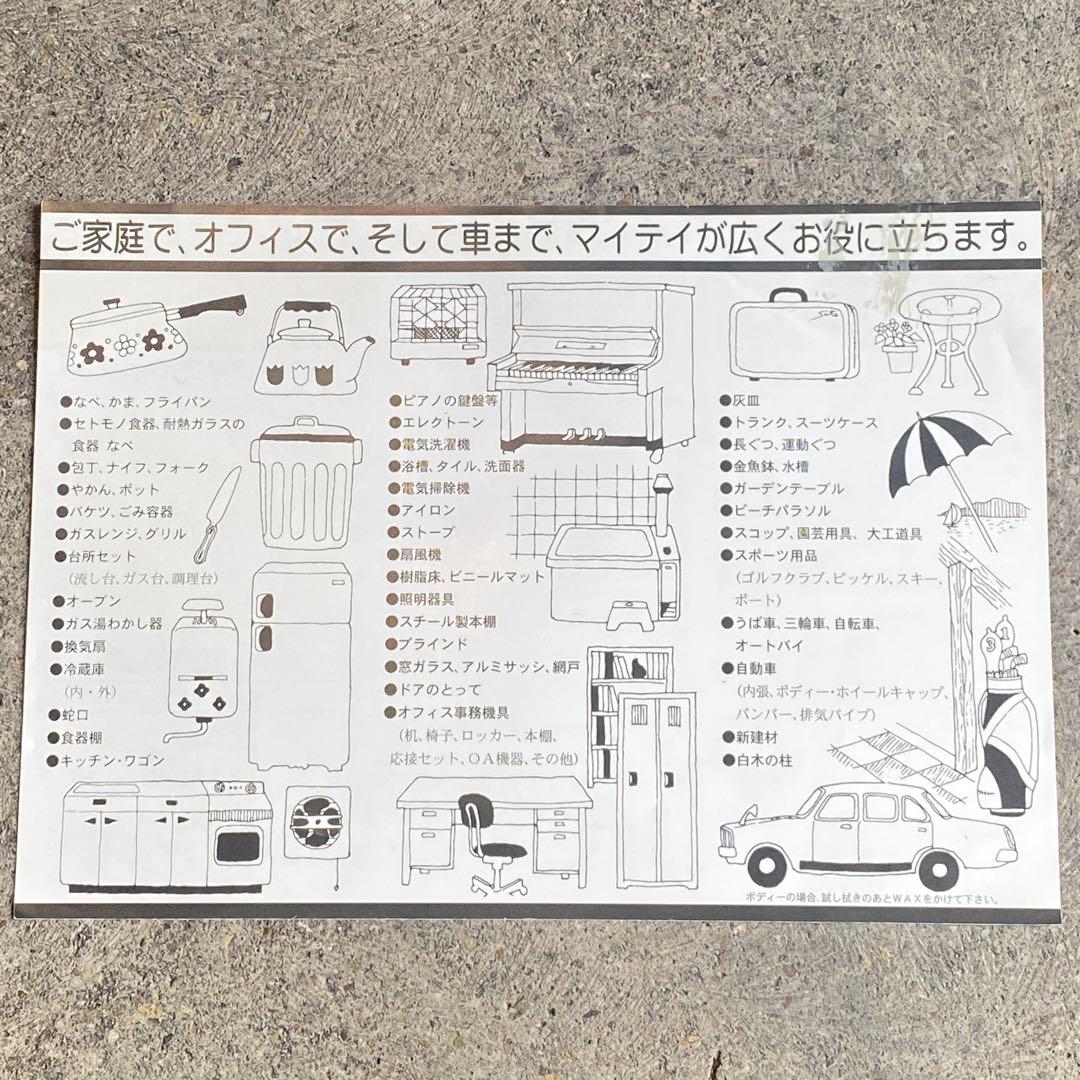 ご家庭で、オフィスで、そして車まで、マイティが広くお役に立ちます。
●なべ、かま、フライパン
●セトモノ食器、耐熱ガラスの
食器 なべ
●包丁、ナイフ、フォーク
●やかん、ポット
●バケツ、ごみ容器
●ガスレンジ、グリル
●台所セット
(流し台、ガス台、調理台)
●オーブン
●ガス湯わかし器
●換気扇
●冷蔵庫
(内・外)
●蛇口
●食器棚
●キッチン・ワゴン
●ピアノの鍵盤等
●エレクトーン
●電気洗濯機
●浴槽、タイル、洗面器
●電気掃除機
●アイロン
●ストーブ
●扇風機
●樹脂床、ビニールマット
●照明器具
●スチール製本棚
●ブラインド
●窓ガラス、アルミサッシ、網戸
●ドアのとって
●オフィス事務機具
(机、椅子、ロッカー、本棚、
応接セット、OA機器、その他)
●灰皿
●トランク、スーツケース
●長ぐつ、運動ぐつ
●金魚鉢、水槽
●ガーデンテーブル
●ビーチパラソル
●スコップ、園芸用具、大工道具
●スポーツ用品
(ゴルフクラブ、ピッケル、スキー、
ボート)
●うば車、三輪車、自転車、
オートバイ
●自動車
(内張、ボディー・ホイールキャップ、
バンパー、排気パイプ)
●新建材
●白木の柱
ボディーの場合、試し拭きのあとWAXをかけて下さい。